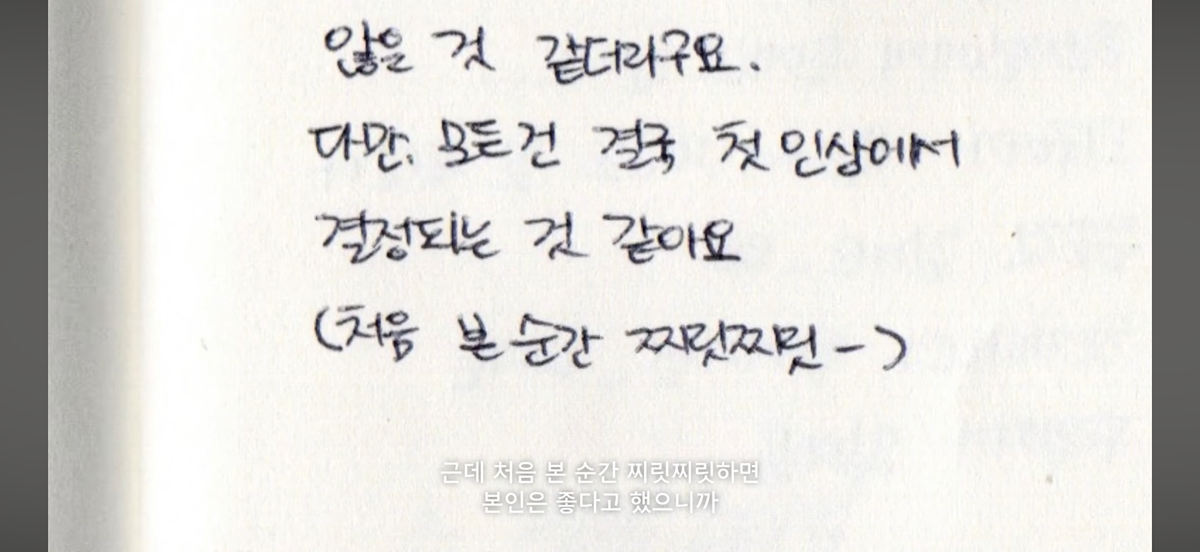 않은 것 같더라구요.
다만, 모든건 결국 첫 인상에서
결정되는 것 같아요
(처음 본 순간 찌릿찌릿-)
근데 처음 본 순간 찌릿찌릿하면
본인은 좋다고 했으니까